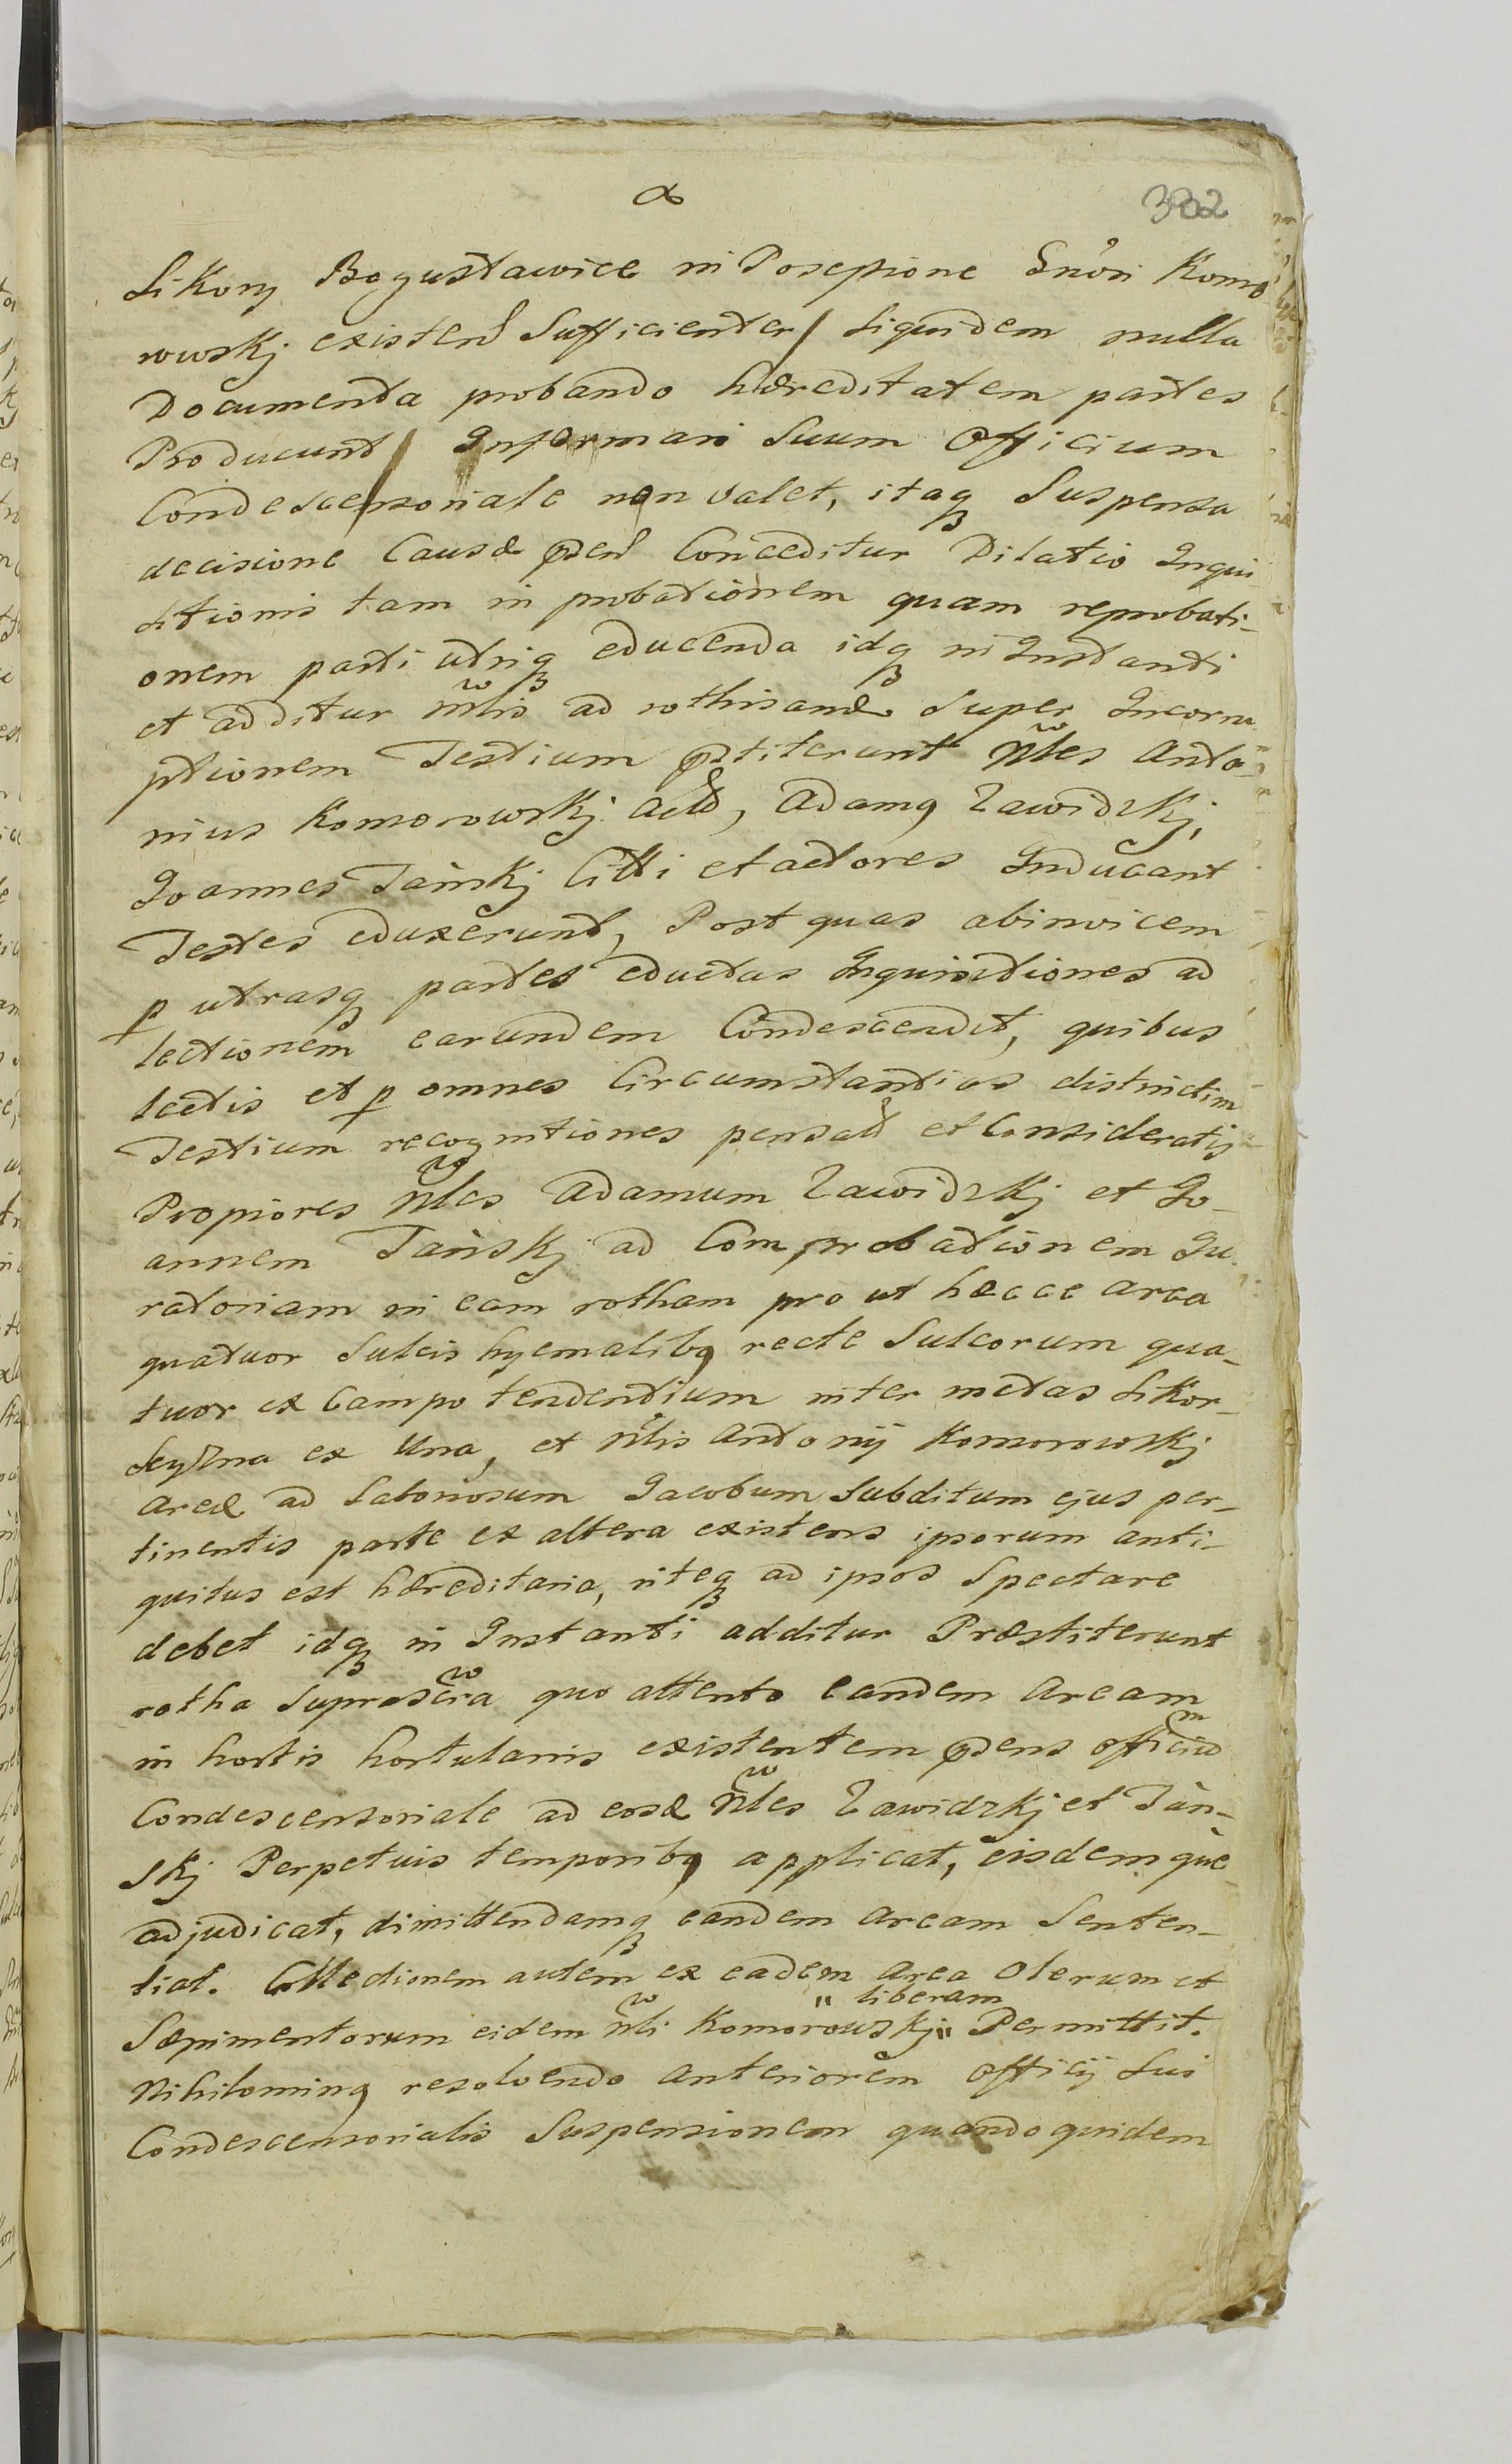 302
Sikory Bogustawice in Posessione Gnosi Komo
rowskj existen Sufficienter/ siquidem nulla
Documenta probando hæreditatem partes
Producunt/ Informari Suum Officium
Condescensoriale non valet, itaq Suspensa
decisione Causæ psen Conceditur Dilatio Inqui
sitionis tam in probationem quam reprobati-
onem parti utriq educenda idq in Instanti
et additur Nlis ad rothisandæ Super Incorru
ptionem Testium pstiterunt Nles Anto-
nius Komorowskj act, Adamq Zawidzkj,
Joannes Tańskj Citti et actores Inducant
Testes eduxerunt, Post quas abinvicem
p utrasq partes eductas Inquisitiones ad
lectionem earundem Condescendit, quibus
lectis et p omnes Circumstantias distinctim
Testium recognitiones pensat et Consideratis
Propiores Nles Adamum Zawidzkj et Jo-
annem Tańskj ad Comprobationem Ju-
ratoriam in eam rotham pro ut hæcce area
quatuor Sulcis hyemalibq recte Sulcorum qua-
tuor ex Campo tendentium inter metas Sikor-
sczyzna ex Una, et Nlis Antonij Komorowskj
areæ ad Laboriosum Jacobum Subditum ejus per-
tinentis parte ex altera existens ipsorum anti-
quitus est hæreditaria, riteq ad ipsos Spectare
debet idq in Instanti additur Præstiterunt
rotha Suprascra quo attento eandem Aream
in hortis hortulanis existentem psens officiu
Condescensoriale ad eosd Nles Zawidzkj et Tań-
skj Perpetuis temporibq applicat, eisdemque
adjudicat, dimittendamq eandem Aream Senten-
tiat. Collectionem autem ex eadem area Olerum et
Sæpimentorum eidem Nli Komorowskj " liberam " Permittit.
Nihilominq resolvendo Anteriorem officij Sui
Condescensorialis Suspensionem quandoquidem